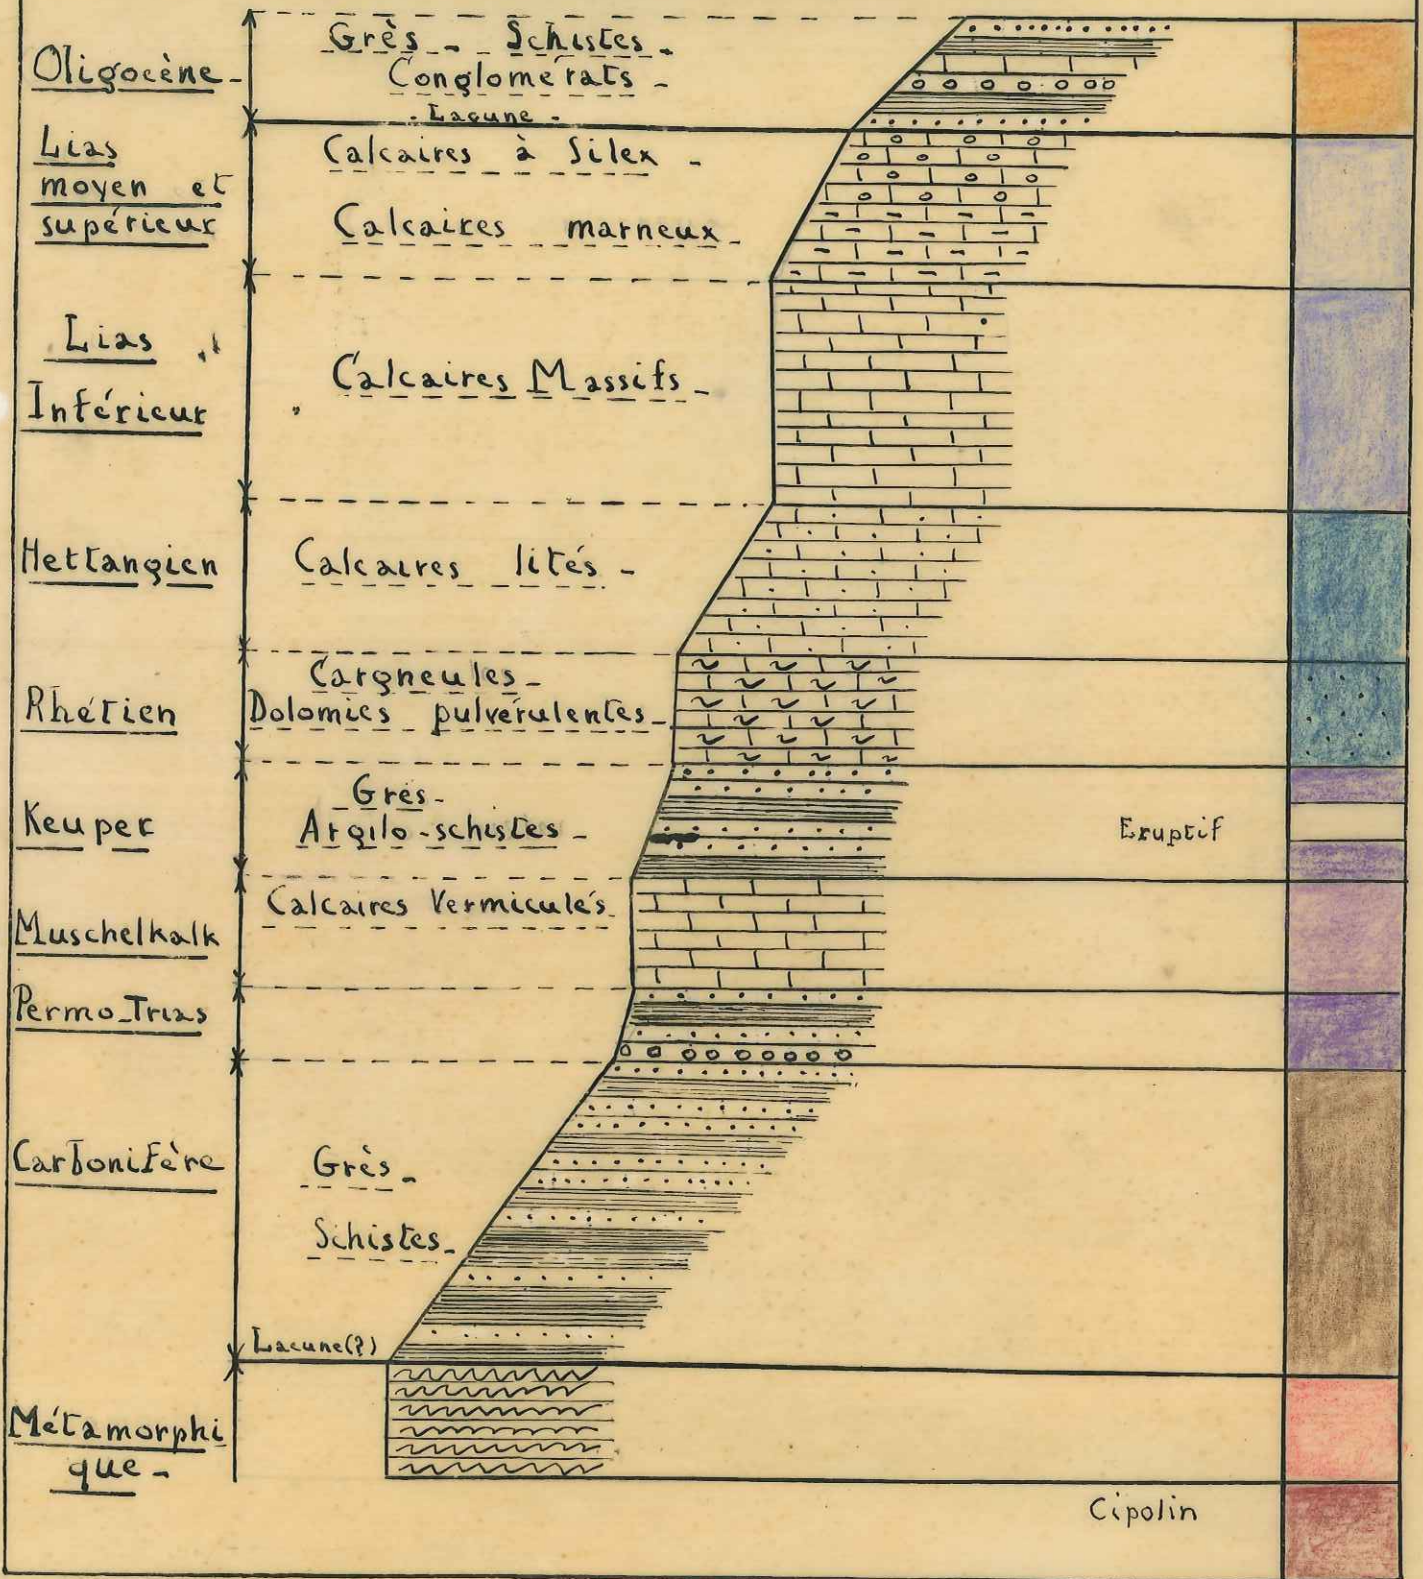 Oligocène-
Grès - Schistes -
Conglomérats -
- Lacune -
Lias
moyen et
supérieur
Calcaires à Silex -
Calcaires marneux -
Lias
Inférieur
Calcaires Massifs -
Hettangien
Calcaires lités -
Rhétien
Cargneules -
Dolomies pulvérulentes -
Keuper
- Grès -
Argilo-schistes -
Eruptif
Muschelkalk
Calcaires Vermiculés
Permo-Trias
Carbonifère
Grès -
Schistes -
Lacune(?)
Métamorphi
que -
Cipolin